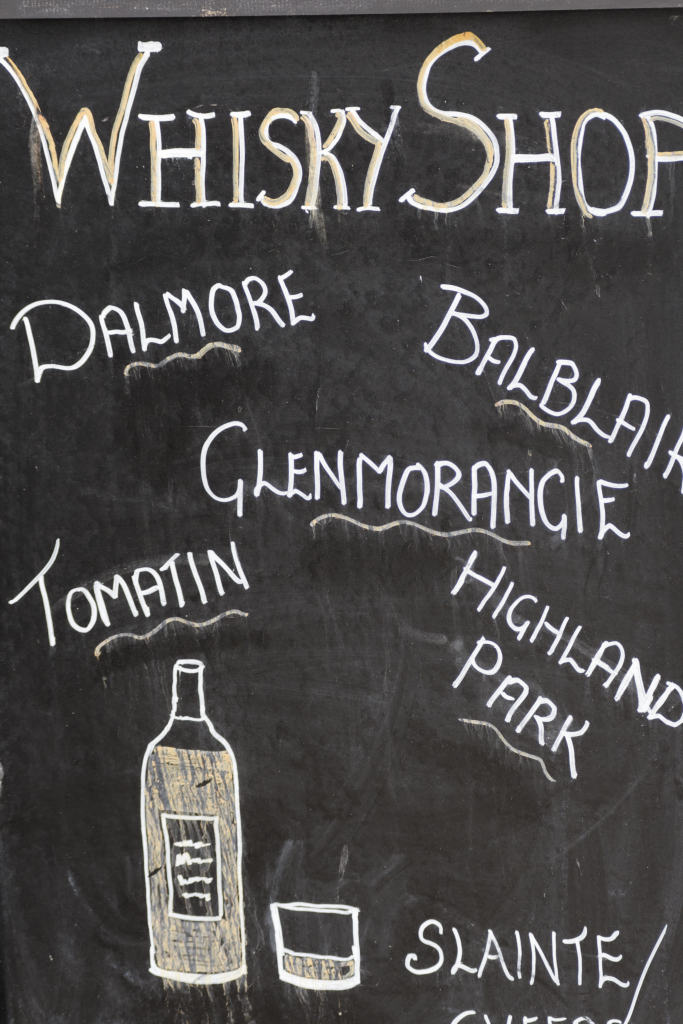 WHISKY SHOP
DALMORE
BALBLAIR
GLENMORANGIE
TOMATIN
HIGHLAND
PARK
SLAINTE/
CHEERS